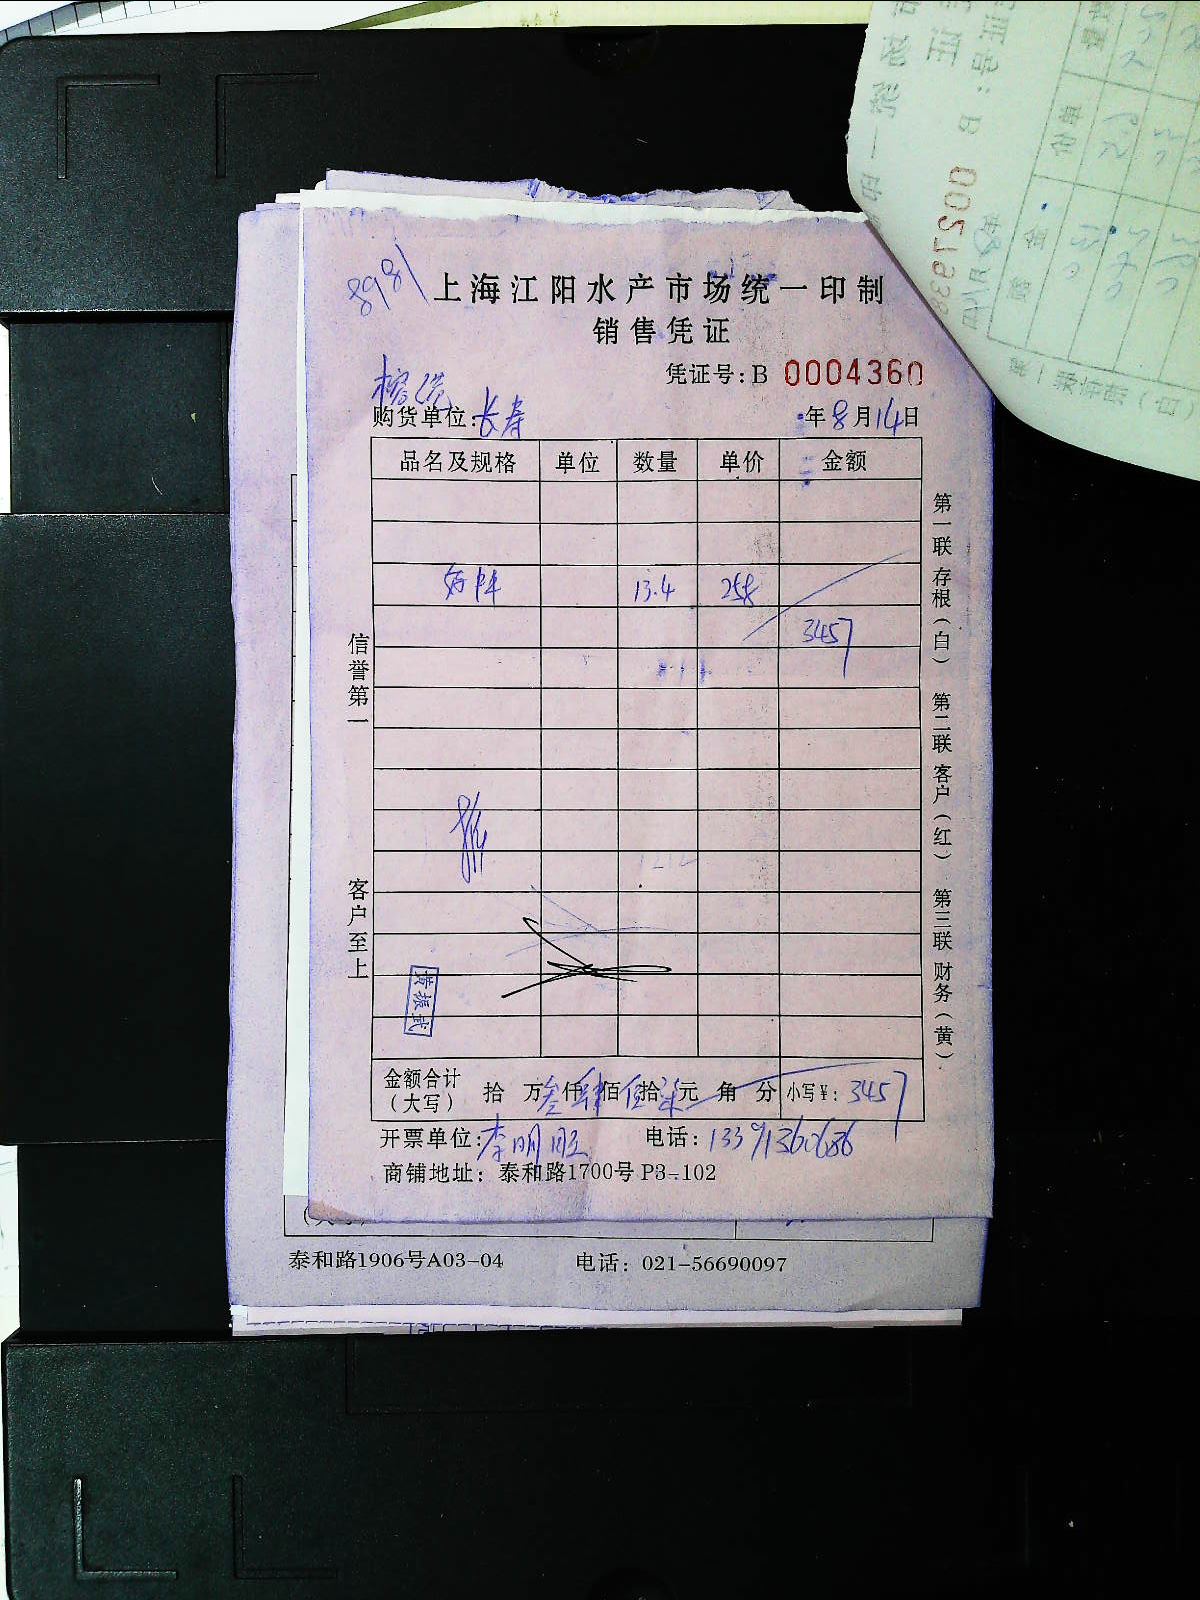 8981
上海江阳水产市场统一印制
销售凭证
凭证号:B 0004360
购货单位:长寿
年8月14日
品名及规格 单位 数量 单价 金额
13.4 258
3457
信誉第一
客户至上
黄振武
第一联 存根(白)
第二联 客户(红)
第三联 财务(黄)
金额合计(大写) 拾 万叁仟肆佰伍拾柒元 角 分 小写¥: 3457
开票单位:李明 电话:13391360686
商铺地址: 泰和路1700号 P3-102
泰和路1906号A03-04 电话: 021-56690097